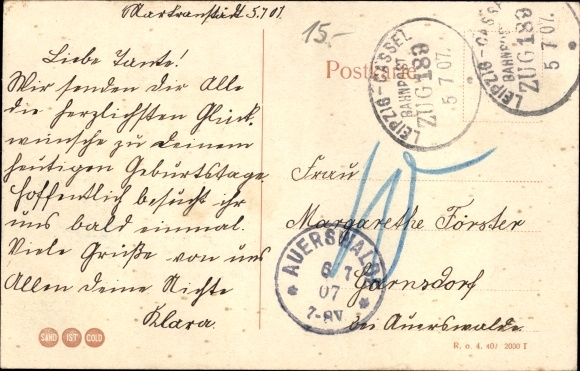 Markranstädt 5.7.07.
15.-
Liebe Tante!
Wir senden dir Alle
die herzlichsten Glück-
wünsche zu deinem
heutigen Geburtstage.
Hoffentlich besucht ihr
uns bald einmal.
Viele Grüße von uns
Allen deine Nichte
Klara.
SAND IST GOLD
Postkarte
LEIPZIG-CASSEL
BAHNPOST
ZUG 189
5 7 07.
LEIPZIG-CASSEL
BAHNPOST
ZUG 189
5 7 07.
Frau
Margarethe Förster
Garnsdorf
bei Auerswalde.
AUERSWALDE
6 7
07
7-8V.
K. o. 4. 40/ 2000 I